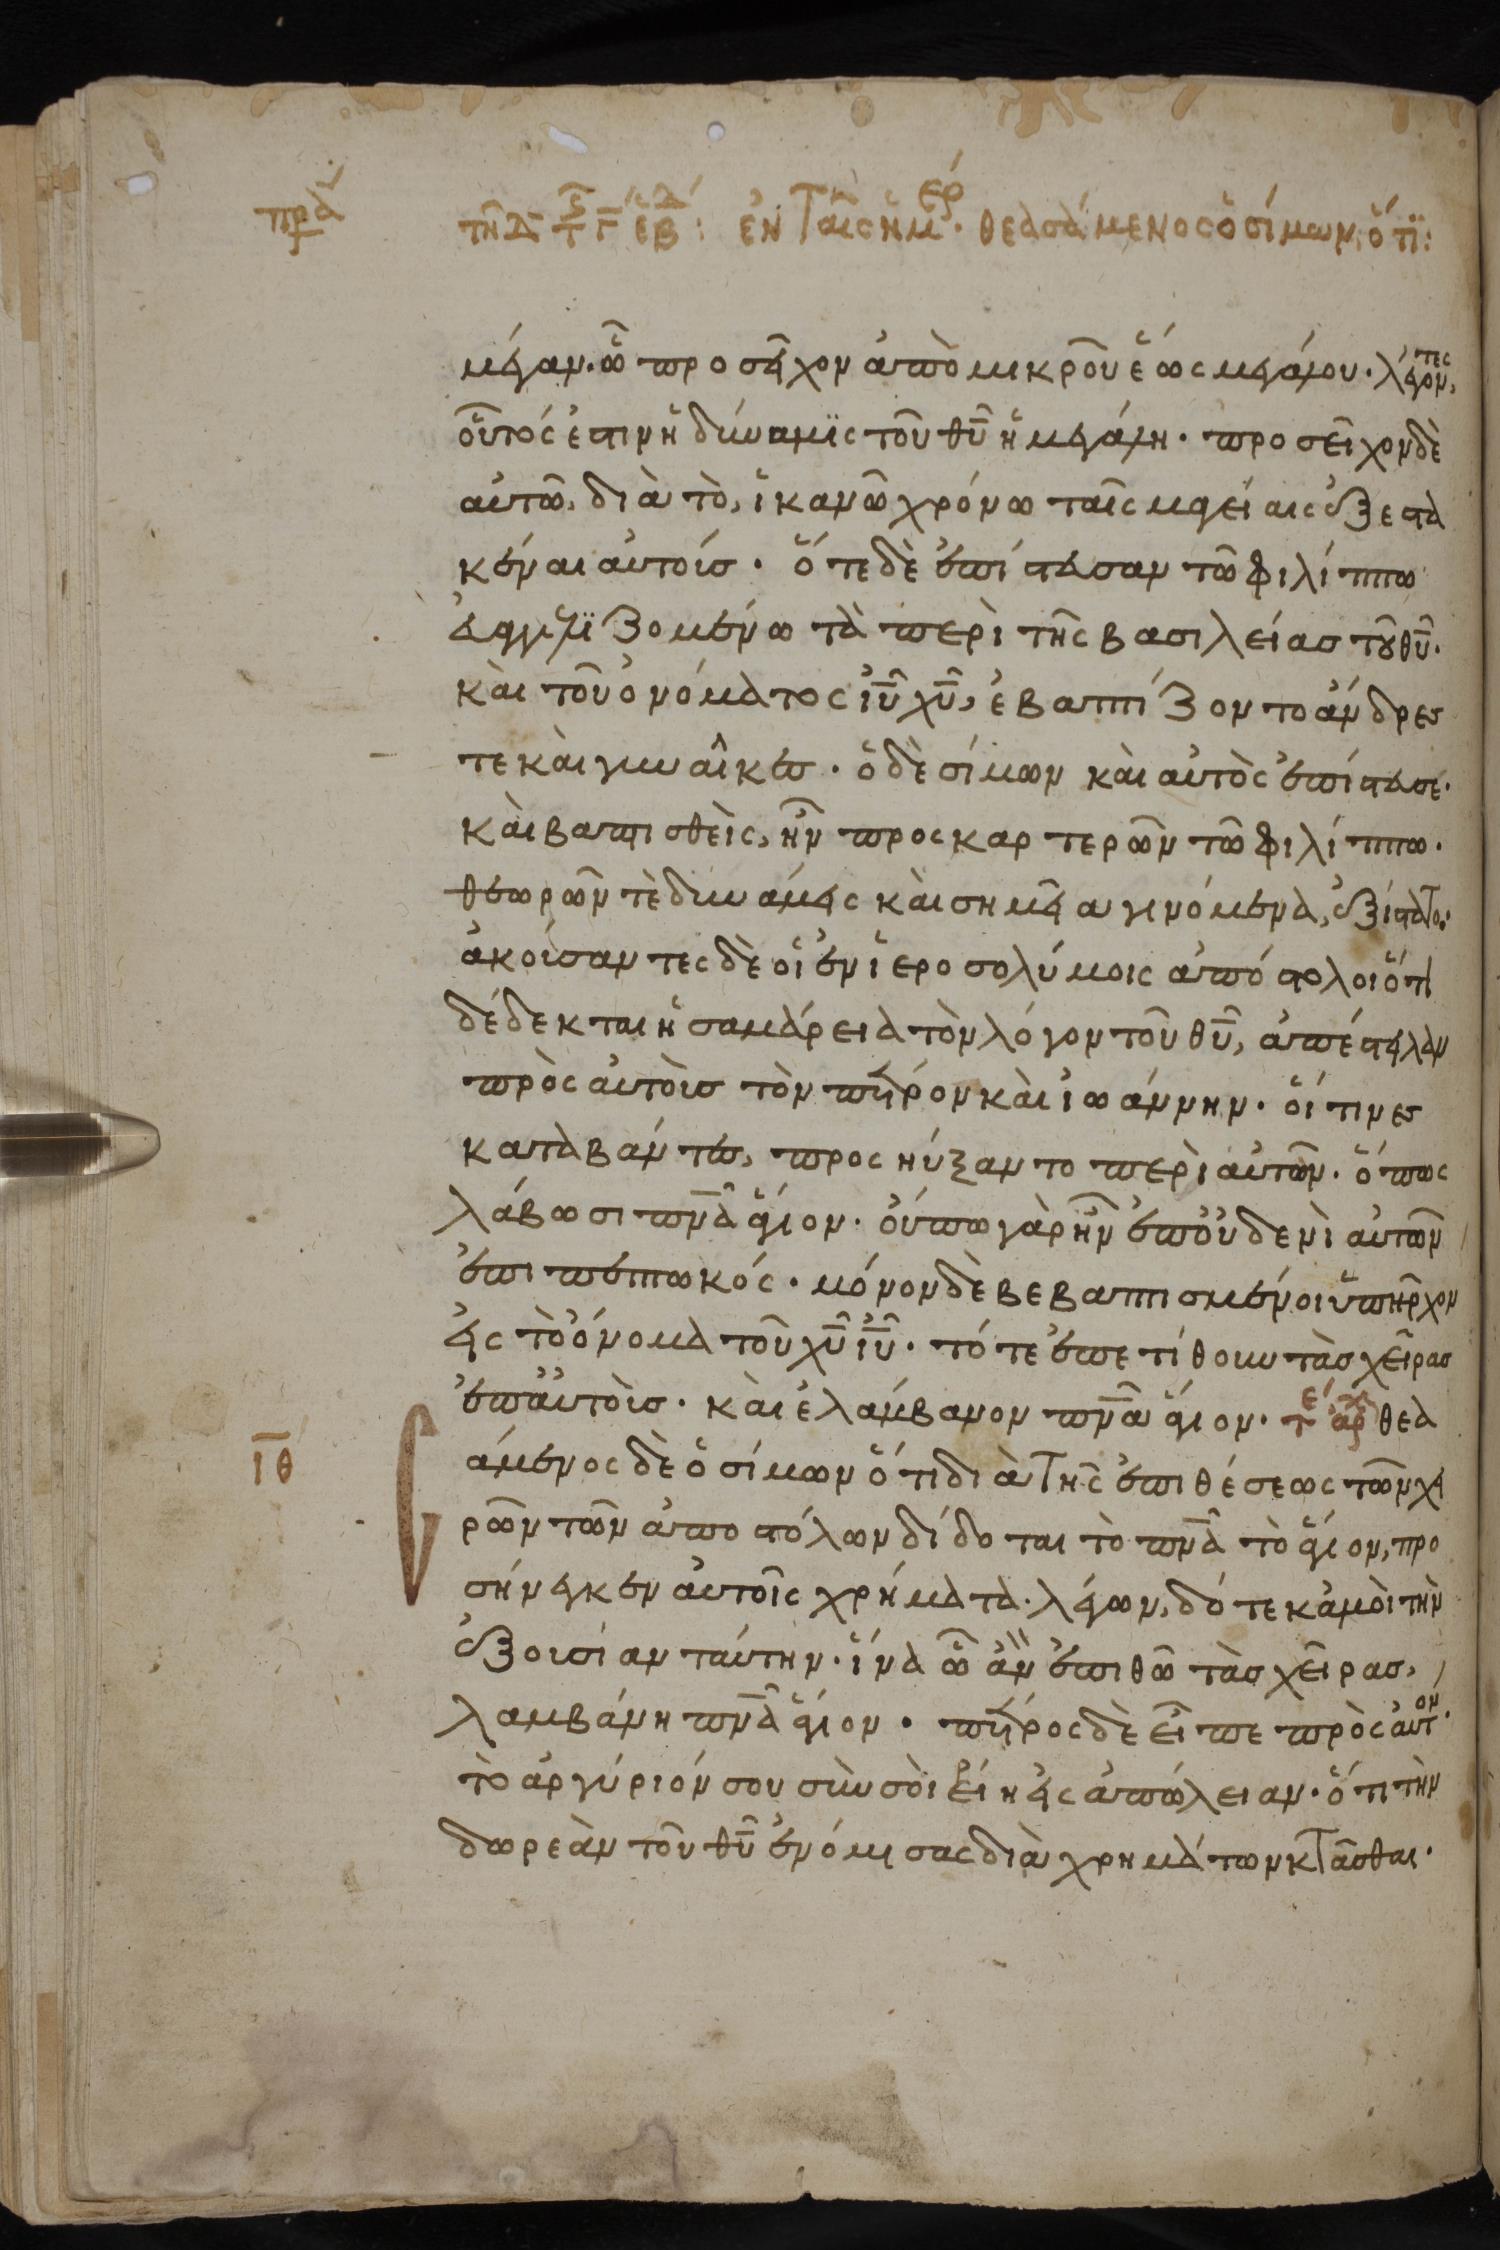 πρα
τῆ δ τ γ ἑβ: ἐν ταῖς ἡμερ· θεασάμενος ὁ σίμων, ὅτϊ:
μέγαν· ὧ προσεῖχον ἀπὸ μικροῦ ἕως μεγάλου· λέγοντες,
οὗτός ἐστιν ἡ δύναμϊς τοῦ θυ ἡ μεγάλη· προσεῖχον δὲ
αὐτῶ, διὰ τὸ, ἱκανῶ χρόνω ταῖς μαγείαις ἐξεστα
κέναι αὐτούς· ὅτε δὲ ἐπίστευσαν τῶ φιλίππω
εὐαγγελϊζομένω τὰ περὶ τῆς βασιλείας τοῦ θυ·
καὶ τοῦ ὀνόματος ιυ χυ, ἐβαπτίζοντο ἄνδρες
τε καὶ γυναῖκες· ὁ δὲ σίμων καὶ αὐτὸς ἐπίστευσε·
καὶ βαπτισθεὶς, ἦν προσκαρτερῶν τῶ φιλίππω·
θεωρῶν τὲ δυνάμεις καὶ σημεῖα γινόμενα, ἐξίστατο·
ἀκούσαντες δὲ οἱ ἐν ἱεροσολύμοις ἀπόστολοι ὅτι
δέδεκται ἡ σαμάρεια τὸν λόγον τοῦ θυ, ἀπέστειλαν
πρὸς αὐτοὺς τὸν πέτρον καὶ ἰωάννην· οἵτινες
καταβάντες, προσηύξαντο περὶ αὐτῶν· ὅπως
λάβωσι πνα ἅγιον· οὔπω γὰρ ἦν ἐπ οὐδενὶ αὐτῶν
ἐπιπεπτωκός· μόνον δὲ βεβαπτισμένοι ὑπῆρχον
εἰς τὸ ὄνομα τοῦ χυ ιυ· τότε ἐπετίθουν τὰς χεῖρας
ἐπ αὐτοὺς· καὶ ἐλάμβανον πνα ἅγιον· τε αρχ θεα
ιθ
άμενος δὲ ὁ σίμων ὅτι διὰ τῆς ἐπιθέσεως τῶν χει
ρῶν τῶν ἀποστόλων δίδοται τὸ πνα τὸ ἅγιον, προ
σήνεγκεν αὐτοῖς χρήματα· λέγων, δότε κἀμοὶ τὴν
ἐξουσίαν ταύτην· ἵνα ὧ ἂν ἐπιθῶ τὰς χεῖρας,
λαμβάνη πνα ἅγιον· πέτρος δὲ εἶπε πρὸς αὐτον·
τὸ ἀργύριόν σου σὺν σοὶ εἴη εἰς ἀπώλειαν· ὅτι τὴν
δωρεὰν τοῦ θυ ἐνόμισας διὰ χρημάτων κτᾶσθαι·